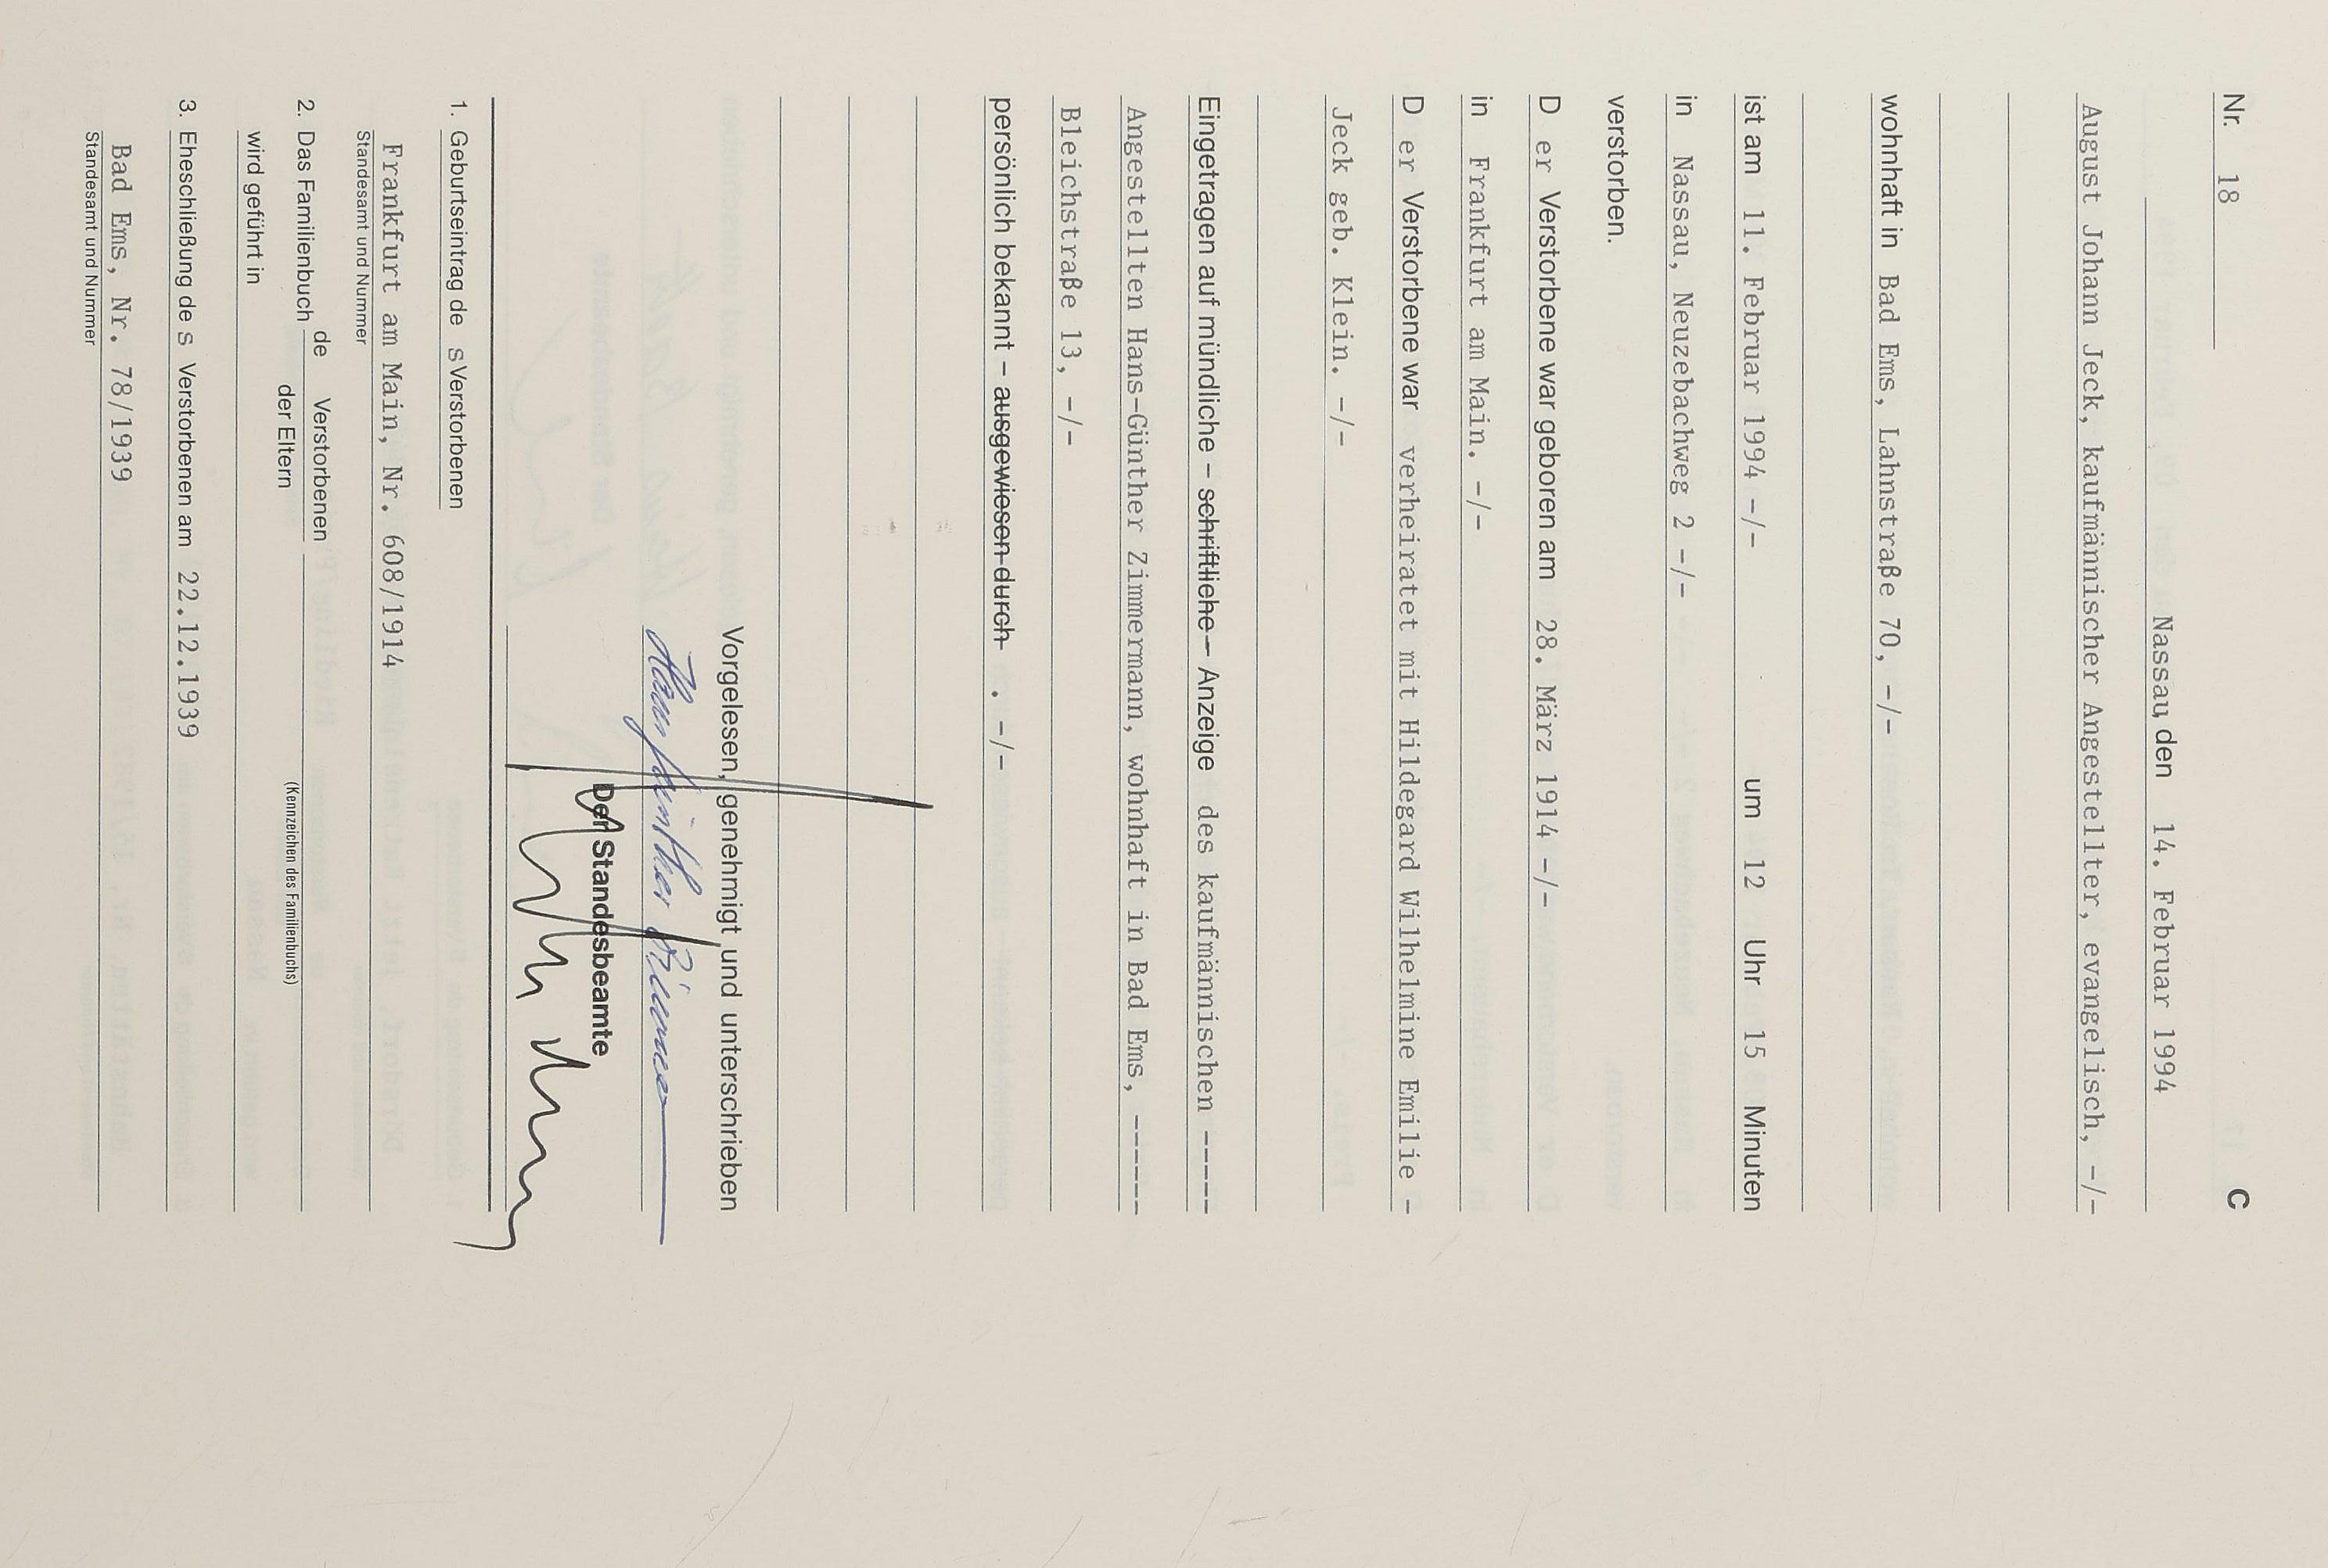 Nr. 18 C
Nassau, den 14. Februar 1994
August Johann Jeck, kaufmännischer Angestellter, evangelisch, -/-
wohnhaft in Bad Ems, Lahnstraße 70, -/-
ist am 11. Februar 1994 -/- um 12 Uhr 15 Minuten
in Nassau, Neuzebachweg 2 -/-
verstorben.
D er Verstorbene war geboren am 28. März 1914 -/-
in Frankfurt am Main. -/-
D er Verstorbene war verheiratet mit Hildegard Wilhelmine Emilie -
Jeck geb. Klein. -/-
Eingetragen auf mündliche – schriftliche – Anzeige des kaufmännischen -----
Angestellten Hans-Günther Zimmermann, wohnhaft in Bad Ems, ------
Bleichstraße 13, -/-
persönlich bekannt – ausgewiesen durch . -/-
Vorgelesen, genehmigt und unterschrieben
Der Standesbeamte
1. Geburtseintrag de s Verstorbenen
Frankfurt am Main, Nr. 608/1914
Standesamt und Nummer
2. Das Familienbuch de Verstorbenen
der Eltern
(Kennzeichen des Familienbuchs)
wird geführt in
3. Eheschließung de s Verstorbenen am 22.12.1939
Bad Ems, Nr. 78/1939
Standesamt und Nummer